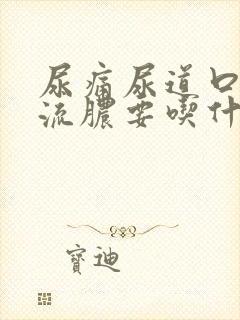 尿痛尿道口
流膿要喫什
寶迪